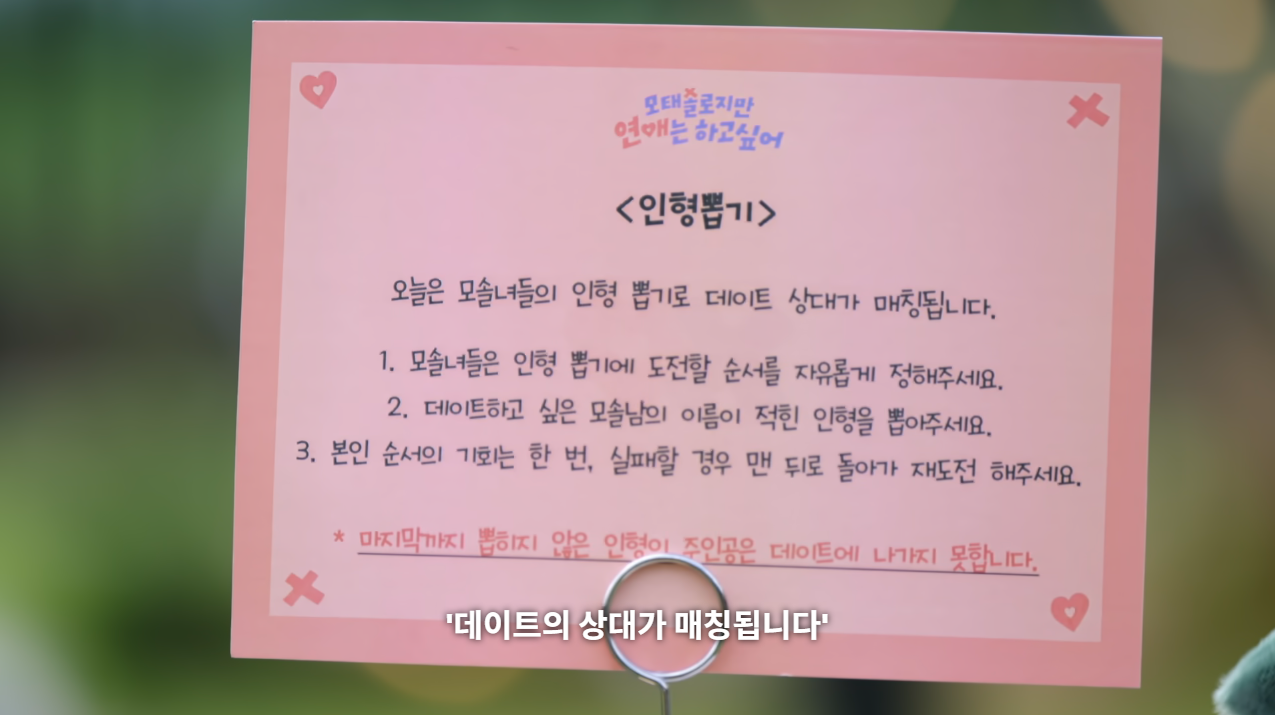 모태솔로지만
연애는 하고싶어
<인형뽑기>
오늘은 모솔녀들의 인형 뽑기로 데이트 상대가 매칭됩니다.
1. 모솔녀들은 인형 뽑기에 도전할 순서를 자유롭게 정해주세요.
2. 데이트하고 싶은 모솔남의 이름이 적힌 인형을 뽑아주세요.
3. 본인 순서의 기회는 한 번, 실패할 경우 맨 뒤로 돌아가 재도전 해주세요.
* 마지막까지 뽑히지 않은 인형의 주인공은 데이트에 나가지 못합니다.
'데이트의 상대가 매칭됩니다'